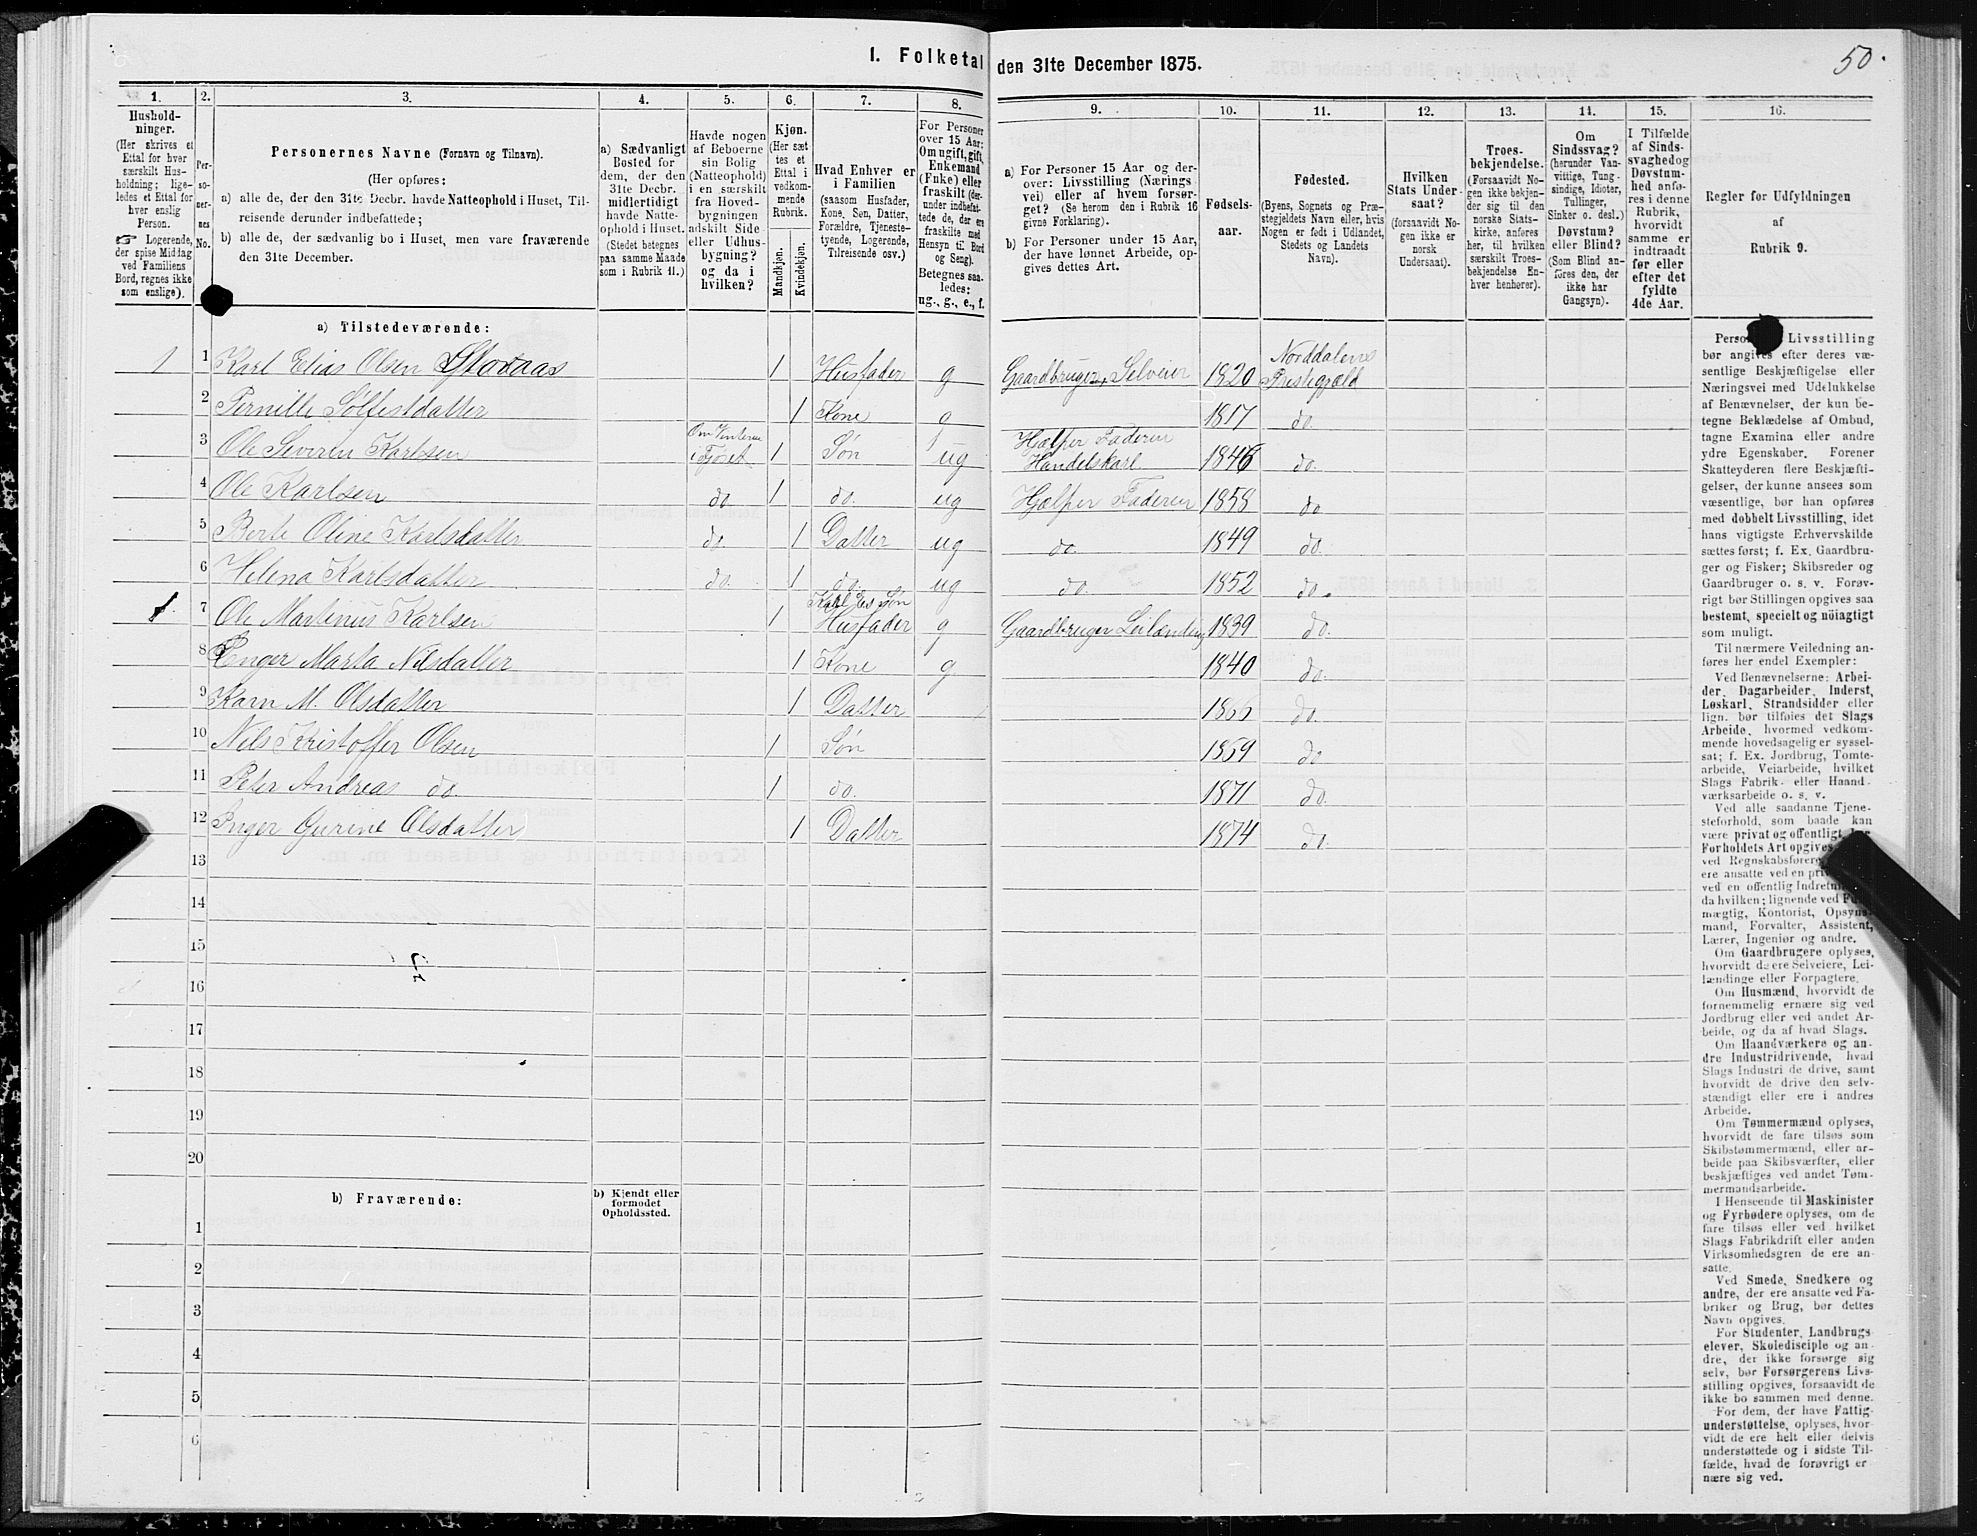 50.
I. Folketal den 31te December 1875.
1. 2. 3. 4. 5. 6. 7. 8. 9. 10. 11. 12. 13. 14. 15. 16.
Hushold-
ninger.
(Her skrives et
Ettal for hver
særskilt Hus-
holdning; lige-
ledes et Ettal for
hver enslig
Person.
☞ Logerende,
der spise Middag
ved Familiens
Bord, regnes ikke
som enslige).
Per-
so-
ner-
nes
No.
Personernes Navne (Fornavn og Tilnavn).
(Her opføres:
a) alle de, der den 31te Decbr. havde Natteophold i Huset, Til-
reisende derunder indbefattede;
b) alle de, der sædvanlig bo i Huset, men vare fraværende
den 31te December.
a) Sædvanligt
Bosted for
dem, der den
31te Decbr.
midlertidigt
havde Natte-
ophold i Huset.
(Stedet betegnes
paa samme Maade
som i Rubrik 11.)
Havde nogen
af Beboerne
sin Bolig
(Natteophold)
i en særskilt
fra Hoved-
bygningen
adskilt Side-
eller Udhus-
bygning?
og da i
hvilken?
Kjøn.
(Her sæt
tes et
Ettal i
vedkom-
mende
Rubrik.
Mandkjøn.
Kvindekjøn.
Hvad Enhver er
i Familien
(saasom Husfader,
Kone, Søn, Datter,
Forældre, Tjeneste-
tyende, Logerende,
Tilreisende osv.)
For Personer
over 15 Aar:
Om ugift, gift,
Enkemand
(Enke) eller
fraskilt (der-
under indbefat-
tede de, der ere
fraskilte med
Hensyn til Bord
og Seng).
Betegnes saa-
ledes:
ug., g., e., f.
a) For Personer 15 Aar og der-
over: Livsstilling (Nærings
vei) eller af hvem forsør-
get? (Se herom den i Rubrik 16
givne Forklaring).
b) For Personer under 15 Aar,
der have lønnet Arbeide, op-
gives dettes Art.
Fødsels-
aar.
Fødested.
(Byens, Sognets og Præ-
stegjeldets Navn eller, hvis
Nogen er født i Udlandet,
Stedets og Landets
Navn).
Hvilken
Stats Under-
saat?
(forsaavidt No-
gen ikke er
norsk
Undersaat).
Troes-
bekjendelse.
(Forsaavidt No-
gen ikke bekjen-
der sig til den
norske Stats-
kirke, anføres
her, til hvilken
særskilt Troes-
bekjendelse En-
hver henhører).
Om
Sindssvag?
(herunder Van-
vittige, Tung-
sindige, Idioter,
Tullinger,
Sinker o. desl.)
Døvstum?
eller Blind?
(Som Blind an-
føres den, der
ikke har
Gangsyn).
I Tilfælde
af Sinds-
svaghed og
Døvstum-
hed anfø-
res i denne
Rubrik,
hvorvidt
samme er
indtraadt
før eller
efter det
fyldte
4de Aar.
Regler for Udfyldningen
af
Rubrik 9.
a) Tilstedeværende:
1 1 Karl Elias Olsen Storaas 1 Husfader g Gaardbruger Selveier 1820 Norddalens Prestegjæld
2 Pernille Solfestdatter 1 Kone g 1817 do.
3 Ole Severen Karlsen Om Vinteren i Fjøset 1 Søn ug Hjælper Faderen Handelskarl 1846 do.
4 Ole Karlsen do 1 do. ug Hjælper Faderen 1858 do
5 Berte Oline Karlsdatter do 1 Datter ug do. 1849 do.
6 Helena Karlsdatter do. 1 do. ug do. 1852 do.
1 7 Ole Martinus Karlsen 1 Karl Es Søn Husfader g Gaardbruger Leilænding 1839 do.
8 Inger Marta Nilsdatter 1 Kone g 1840 do.
9 Karn M. Olsdatter 1 Datter 1866 do.
10 Nils Kristoffer Olsen 1 Søn 1859 do
11 Peter Andreas do. 1 do. 1871 do.
12 Inger Gurine Olsdatter 1 Datter 1874 do.
13
14
15
16
17
18
19
20
b) Fraværende:
b) Kjendt eller
formodet
Opholdssted.
1
2
3
4
5
6
Livsstilling
bør angives efter deres væ-
sentlige Beskjæftigelse eller
Næringsvei med Udelukkelse
af Benævnelser, der kun be-
tegne Beklædelse af Ombud,
tagne Examina eller andre
ydre Egenskaber. Forener
Skatteyderen flere Beskjæfti-
gelser, der kunne ansees som
væsentlige, bør han opføres
med dobbelt Livsstilling, idet
hans vigtigste Erhvervskilde
sættes først; f. Ex. Gaardbru-
ger og Fisker; Skibsreder og
Gaardbruger o. s. v. Forøv-
rigt bør Stillingen opgives saa
bestemt, specielt og nøiagtigt
som muligt.
Til nærmere Veiledning an-
føres her endel Exempler:
Ved Benævnelserne: Arbei-
der, Dagarbeider, Inderst,
Løskarl, Strandsidder eller
lign. bør tilføies det Slags
Arbeide, hvormed vedkom-
mende hovedsagelig er syssel-
sat; f. Ex. Jordbrug, Tomte-
arbeide, Veiarbeide, hvilket
Slags Fabrik- eller Haand-
værksarbeide o. s. v.
Ved alle saadanne Tjene-
steforhold, som baade kan
være privat og offentligt, bør
Forholdets Art opgives,
ved Regnskabsførere,
ere ansatte ved en
ved en offentlig
da hvilken; lignende ved
mægtig, Kontorist, Opsyns-
mand, Forvalter, Assistent,
Lærer, Ingeniør og andre.
Om Gaardbrugere oplyses,
hvorvidt de ere Selveiere, Lei-
lændinge eller Forpagtere.
Om Husmænd, hvorvidt de
fornemmelig ernære sig ved
Jordbrug eller ved andet Ar-
beide, og da af hvad Slags.
Om Haandværkere og an-
dre Industridrivende, hvad
Slags Industri de drive, samt
hvorvidt de drive den selv-
stændigt eller ere i andres
Arbeide.
Om Tømmermænd oplyses,
hvorvidt de fare tilsøs som
Skibstømmermænd, eller ar-
beide paa Skibsværfter, eller
beskjæftiges ved andet Tøm-
mermandsarbeide.
I Henseende til Maskinister
og Fyrbødere oplyses, om de
fare tilsøs eller ved hvilket
Slags Fabrikdrift eller anden
Virksomhedsgren de ere an-
satte.
Ved Smede, Snedkere og
andre, der ere ansatte ved Fa-
briker og Brug, bør dettes
Navn opgives.
For Studenter, Landbrugs-
elever, Skoledisciple og an-
dre, der ikke forsørge sig
selv, bør Forsørgerens Livs-
stilling opgives, forsaavidt de
ikke bo sammen med denne.
For dem, der have Fattig-
understøttelse, oplyses, hvor-
vidt de ere helt eller delvis
understøttede og i sidste Til-
fælde, hvad de forøvrigt er
nære sig ved.